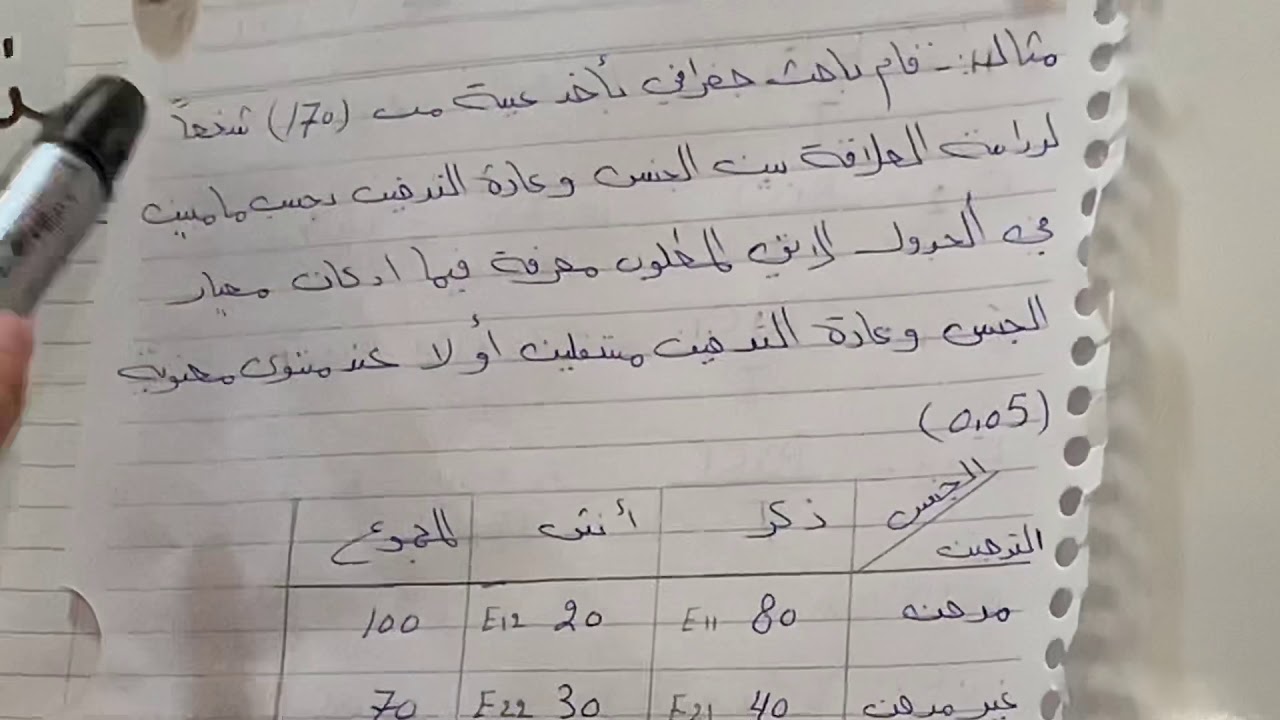 مثال:- قام باحث جغرافي بأخذ عينة من (170) شخصاً
لدراسة العلاقة بين الجنس وعادة التدخين وحسب ما مبين
في الجدول الاتي المطلوب معرفة فيما اذ كان معيار
الجنس وعادة التدخين مستقلين أو لا عند مستوى معنوية
(0.05)
الجنس ذكر أنثى المجموع
التدخين
مدخن 80 E11 20 E12 100
غير مدخن 40 E21 30 E22 70